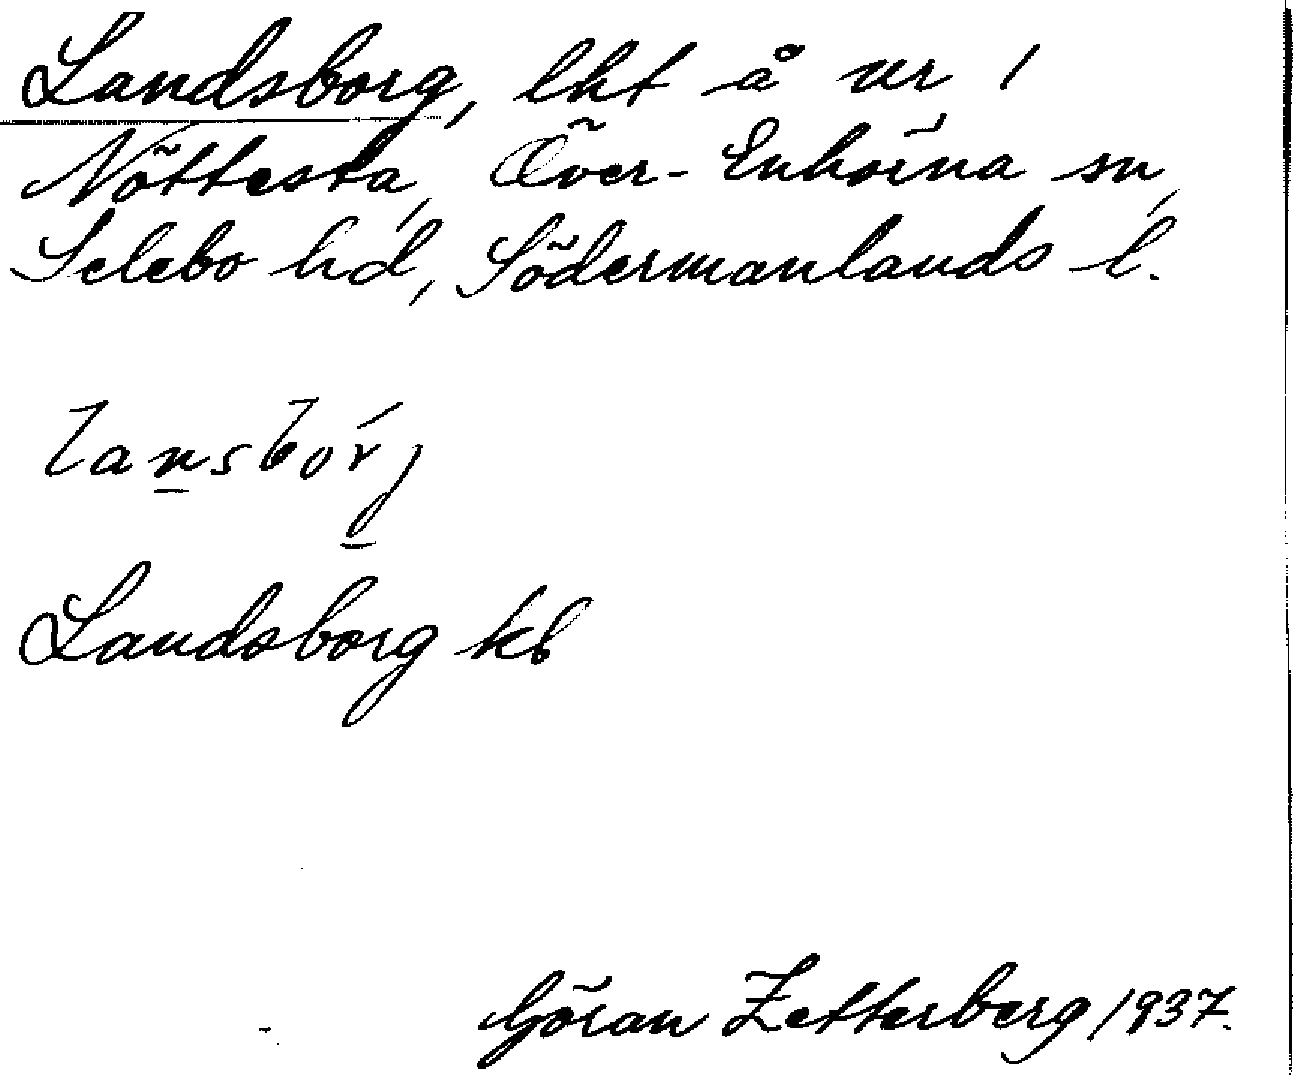 Landsborg, lht å nr 1
Nöttesta, Över-Enhörna sn,
Selebo hd, Södermanlands l.
lansbórj
Landsborg kb
Göran Zetterberg 1937.